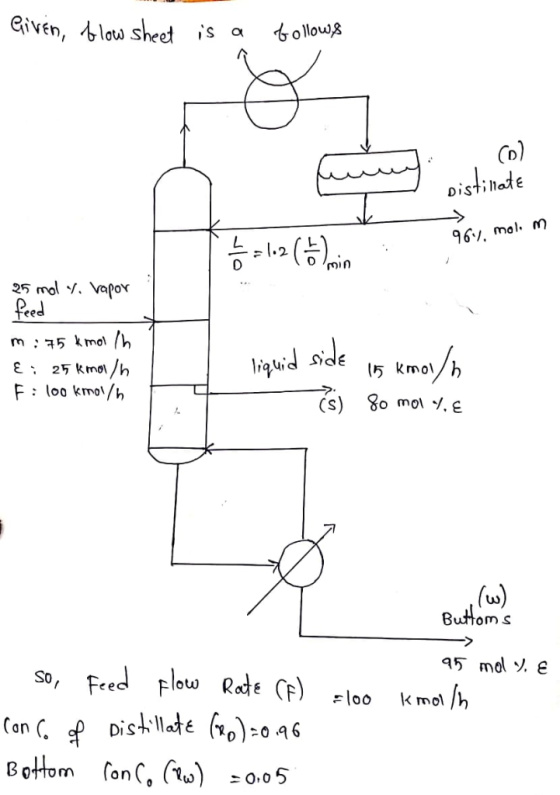 Given, flow sheet is a follows
(D)
Distillate
96% mol. m
L/D = 1.2 (L/D)min
25 mol % vapor
feed
m : 75 kmol/h
E : 25 kmol/h
F : 100 kmol/h
liquid side 15 kmol/h
(S) 80 mol % E
(w)
Buttoms
95 mol % E
So, Feed Flow Rate (F) = 100 kmol/h
Conc. of Distillate (xD)=0.96
Bottom Conc. (xw) = 0.05